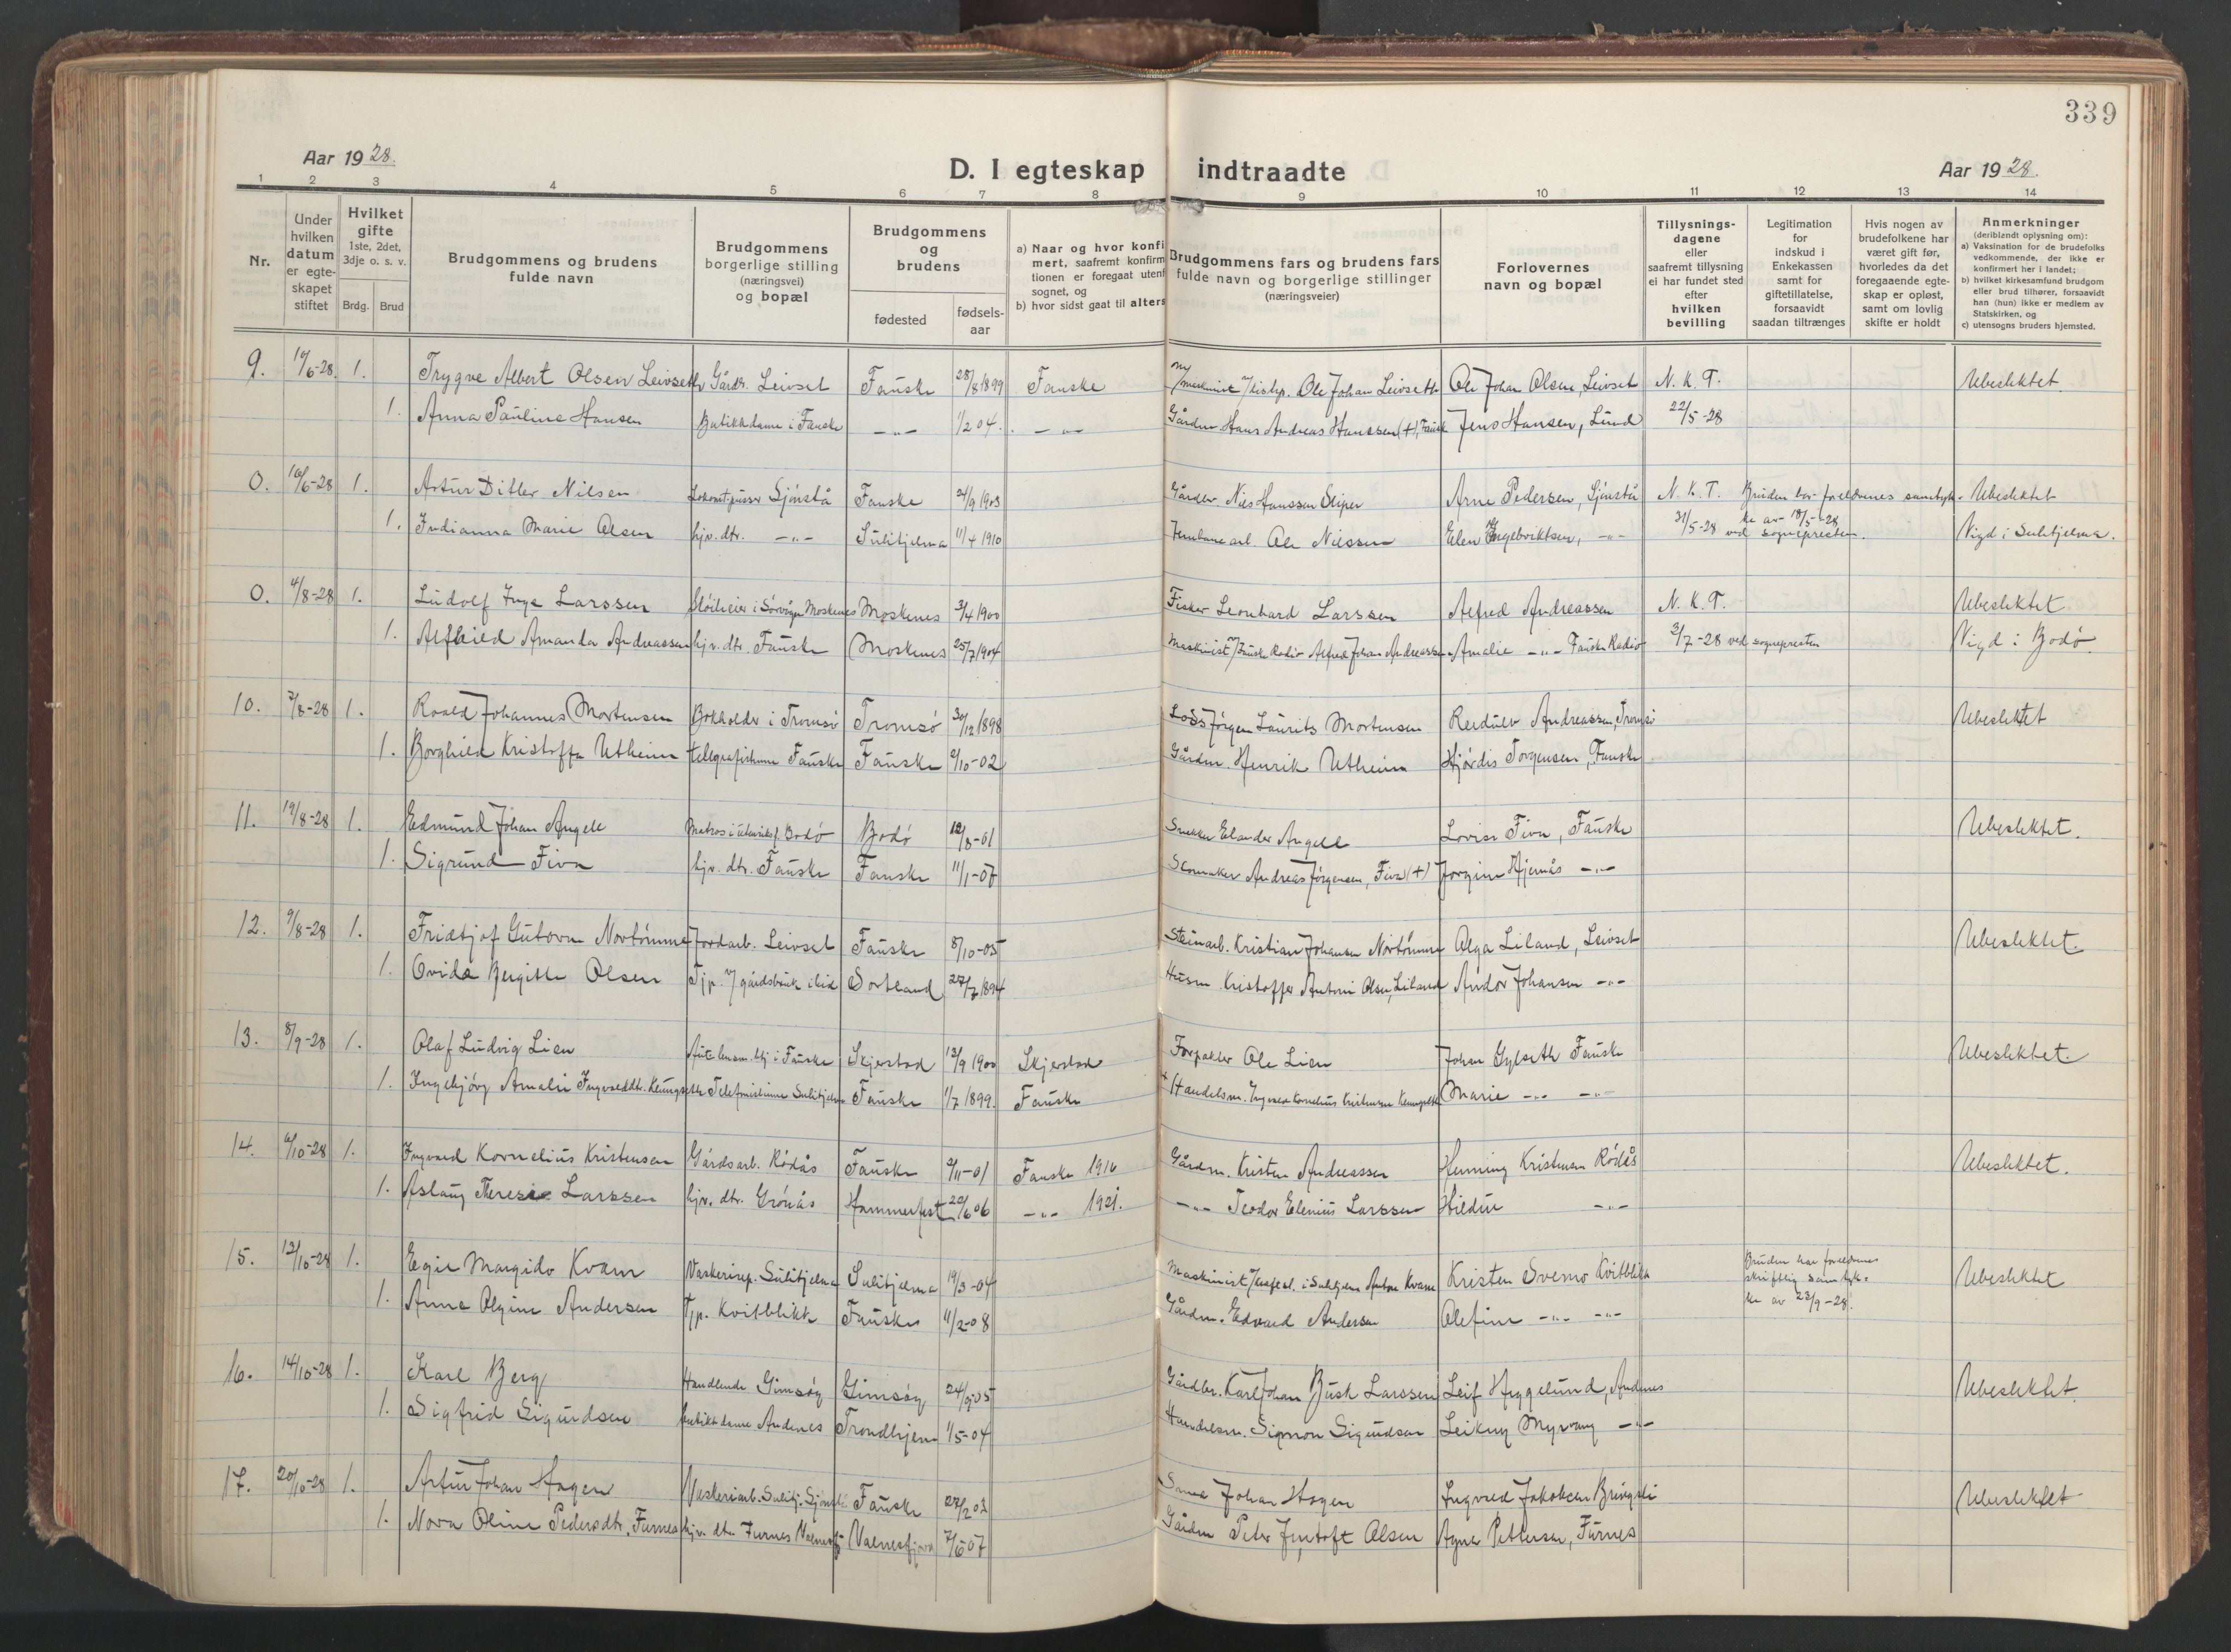 339
Aar 1928.
D. I egteskap indtraadte
Aar 1928.
1 2 3 4 5 6 7 8 9 10 11 12 13 14
Nr.
Under hvilken datum er egteskapet stiftet
Hvilket gifte 1ste, 2det, 3dje o. s. v.
Brdg. Brud
Brudgommens og brudens fulde navn
Brudgommens borgerlige stilling (næringsvei) og bopæl
Brudgommens og brudens
fødested
fødsels-aar
a) Naar og hvor konfi
mert, saafremt konfirm
tionen er foregaat utenf
sognet, og
b) hvor sidst gaat til alters
Brudgommens fars og brudens fars
fulde navn og borgerlige stillinger
(næringsveier)
Forlovernes
navn og bopæl
Tillysnings-
dagene
eller
saafremt tillysning
ei har fundet sted
efter
hvilken
bevilling
Legitimation
for
indskud i
Enkekassen
samt for
giftetillatelse,
forsaavidt
saadan tiltrænges
Hvis nogen av
brudefolkene har
været gift før,
hvorledes da det
foregaaende egte-
skap er opløst,
samt om lovlig
skifte er holdt
Anmerkninger
(deriblandt oplysning om):
a) Vaksination for de brudefolks
vedkommende, der ikke er
konfirmert her i landet;
b) hvilket kirkesamfund brudgom
eller brud tilhører, forsaavidt
han (hun) ikke er medlem av
Statskirken, og
c) utensogns bruders hjemsted.
9. 1. Trygve Albert Olsen Leivseth Gårdr. Leivset Fauske 28/8 1899 Fauske Ole Johan Leivseth Ole Johan Olsen, Leivset N. K. T. Ubeslektet.
1. Anna Pauline Hansen Butikkdame i Fauske -"- 1/2 04. -"- Gårdm. Hans Andreas Hanssen (+), Fausk Jens Hansen, Lund 22/5-28
0. 10/6-28 1. Artur Ditlev Nilsen Lokomotpusser Sjönstå Fauske 24/9 1903 Gårdbr. Nils Hanssen Arne Pedersen, Sjönstå N. K. T. Bruden har foreldrenes samtyk- Ubeslektet
1. Indianna Marie Olsen hjv. dtr. -"- Sulitjelma 11/4 1910 Jernbanearb. Ole Nilssen Elen Engebriktsen, -"- 31/5-28 ke av 18/5-28 ved sognepresten. Vigd i Sulitjelma.
0. 4/8-28 1. Ludolf Inge Larssen i Sørvågen Moskenes Moskenes 3/4 1900 Fisker Leonhard Larssen Alfred Andreassen N. K. T. Ubeslektet
1. Alfhild Amanda Andreassen hjv. dtr. Fauske Moskenes 25/7 1904 Maskinist v/Fauske Radio Alfred Johan Andreassen Amalie -"- Fauske Radio 3/7-28 ved sognepresten Vigd i Bodö.
10. 7/8-28 1. Roald Johannes Mortensen Bokholder i Tromsö Tromsö 30/12 1898 Lods Jörgen Laurits Mortensen Reidulv Andreassen, Tromsö Ubeslektet
1. Borghild Kristoffa Utheim telegrafistinne Fauske Fauske 9/10-02 Gårdm. Henrik Utheim Hjördis Torgensen, Fauske
11. 19/8-28 1. Edmund Johan Angell Matros i utenriksf. Bodö Bodö 12/8-01 Snekker Elander Angell Lovise Fiva, Fauske Ubeslektet.
1. Sigrund Fiva hjv. dtr. Fauske Fauske 11/1-07 Skomaker Andreas Jörgensen, Fiva (+) Jorgine Hjernås -"-
12. 9/8-28 1. Fridtjof Gutorm Nortömme Jordarb. Leivset Fauske 8/10-05 Steinarb. Kristian Johansen Nortömme Olga Liland, Leivset Ubeslektet.
1. Ovida Bergitte Olsen Tjp. v/ gårdsbruk ibid Sortland 27/7 1894 Husm. Kristoffer Antoni Olsen, Liland Andor Johansen -"-
13. 8/9-28 1. Olaf Ludvig Lien i Fauske Skjerstad 12/9 1900 Skjerstad Forpakter Ole Lien Johan Gylseth Fauske Ubeslektet.
1. Ingebjörg Amalie Ingvaldsdtr. Klungseth Telefonistinne Sulitjelma Fauske 1/7 1899. Fauske Handelsm. Ingvald Kornelius Kristensen Klungseth Marie -"- -"-
14. 6/10-28 1. Ingvald Kornelius Kristensen Gårdsarb. Rödås Fauske 9/11-01 Fauske 1916 Gårdm. Kristen Andreassen Henning Kristensen Rödås Ubeslektet.
1. Aslaug Therese Larssen hjv. dtr. Grönås Hammerfest 20/6 06 -"- 1921. -"- Teodor Elenius Larssen Hildur -"-
15. 13/10-28 1. Egil Margido Kvam Vaskerisp. Sulitjelma Sulitjelma 19/3-04 Maskinist i Sulitjelma Anton Kvam Kristen Svemo Kvitblikk Bruden har foreldrenes skriftlig samtyk- ke av 28/9-28. Ubeslektet
1. Anna Olgine Andersen Tjp. Kvitblikk Fauske 11/2-08 Gårdm. Edvard Andersen Olefine -"- -"-
16. 14/10-28 1. Karl Berg Handlende Gimsöy Gimsöy 24/9 05 Gårdbr. Karl Johan Busk Larssen Leif Heggelund, Andenes Ubeslektet.
1. Sigfrid Sigurdsen butikkdame Andenes Trondhjem 1/5-04 Handelsm. Sigmon Sigurdsen Leikny Myrvang -"-
17. 20/10-28 1. Artur Johan Hagen Vaskeriarb. Sulitj. Sjönstå Fauske 27/2 03 Johan Hagen Ingvald Jakobsen Ubeslektet
1. Nora Oline Pedersdtr. Furnes hjv. dtr. Furnes Valnesfj Valnesfjord 7/6 07 Gårdm Peder Jentoft Olsen Agna Pettersen, Furnes